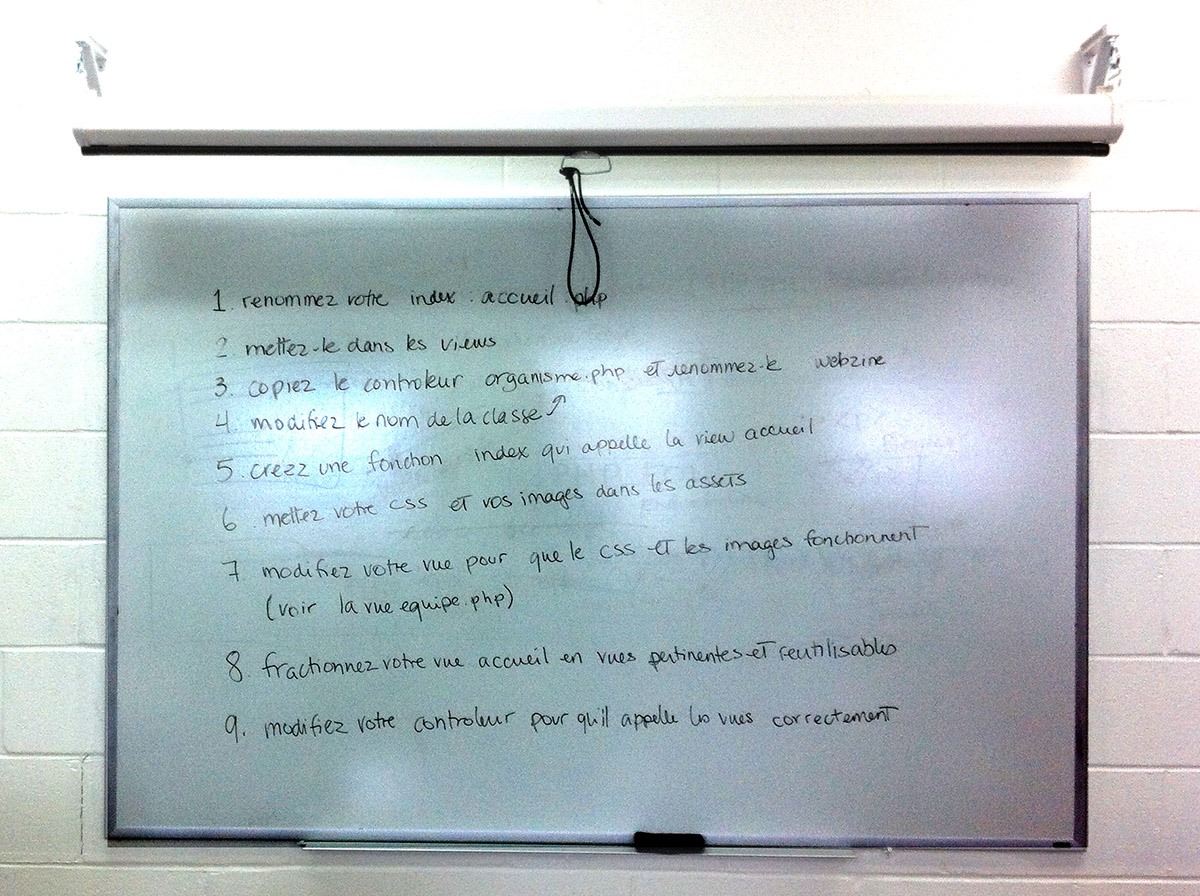 1. renommez votre index : accueil.php
2 mettez-le dans les views
3. copiez le controleur organisme.php et renommez-le webzine
4. modifiez le nom de la classe ↗
5. creez une fonction index qui appelle la view accueil
6 mettez votre css et vos images dans les assets
7 modifiez votre vue pour que le css et les images fonctionnent
(voir la vue equipe.php)
8. fractionnez votre vue accueil en vues pertinentes et reutilisables
9. modifiez votre controleur pour qu'il appelle les vues correctement